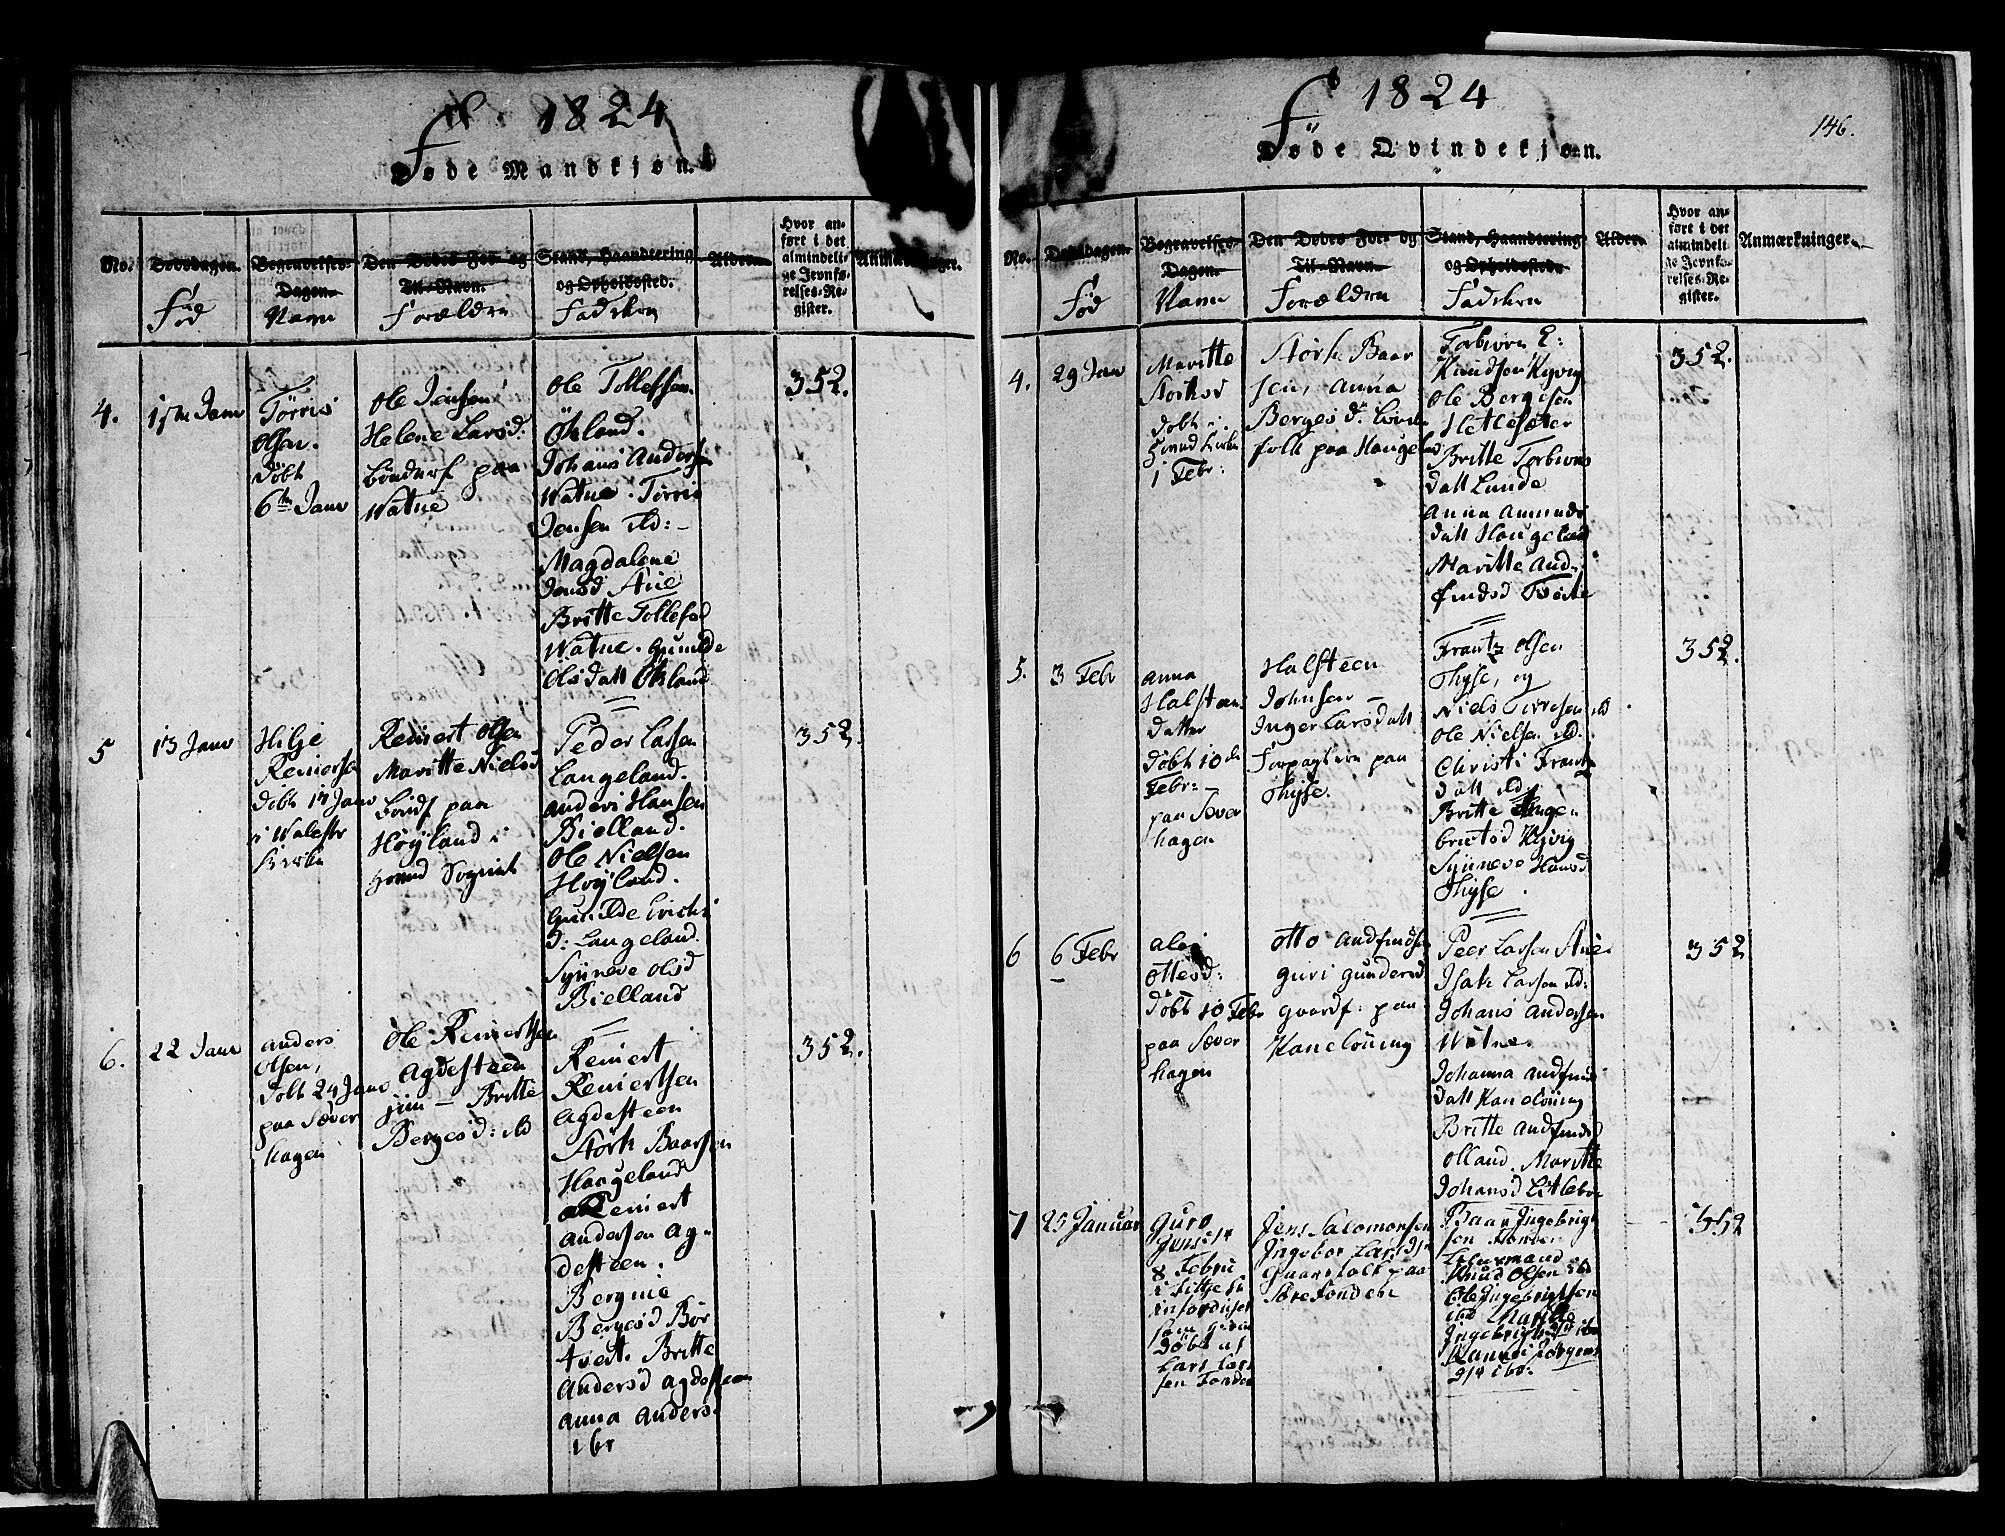 1824
Døde Mandkjøn.
No.
Dødsdagen.
Fød
Begravelses-
Dagen.
Navn
Den Dødes For- og
Til-Navn.
Forældre
Stand, Haandtering
og Opholdssted.
Faddere
Alder.
Hvor an-
ført i det
almindeli-
ge Jevnfø-
relses-Re-
gister.
Anmærkninger.
4.
1ste Janv
Tørris
Olsen.
døbt
6te Janv
Ole Jensen
Helene Larsd:
paa
Watne
Ole Tollefsen
Økland.
Johans Anders
Watne. Tørris
Jensen ibd:
Magdalene
Jensd Aue
Britte Tollefsd
Watne. Gunilde
Olsdatt Økland
352.
5
13 Janv
Hilje
Reniersen
døbt 17 Janv
i Walestr
Kirke
Reniert Olsen
Maritte Nielsd
paa
Høyland i
Sognet
Peder Larsen
Langeland.
Anders Hansen
Bielland.
Ole Nielsen
Høyland.
Gunilde Erichs
d: Langeland.
Syneve Olsd
Bielland
352.
6.
22 Janv
Anders
Olsen,
døbt 24 Janv
paa Sæver
hagen
Ole Reniertsen
Agdesteen
Britte
Bergesd: ibd
Reniert
Reniertsen
Agdesteen
Størk Baarsen
Haugeland
Reniert
Andersen Ag-
desteen.
Bergesd Bør
tvet. Britte
Andersd Agdesteen
Anna Anders.
ibr
352.
1824
146.
Døde Qvindekjøn.
No.
Dødsdagen.
Fød
Begravelses-
Dagen.
Navn
Den Dødes For- og
Til-Navn.
Forældre
Stand, Haandtering
og Opholdssted.
Faddere
Alder.
Hvor an-
ført i det
almindeli-
ge Jevnfø-
relses-Re-
gister.
Anmærkninger.
4.
29 Jan
Maritte
Størksd
døbt i
1 Febr:
Størk Baar
sen, Anna
Berges d:
folk paa Haugeland
Torbiørn E:
Knudsen Kyvig
Ole Bergesen
Hetlesæter
Britte Torbiørns
datt Lunde
Anna Amunds
datt Haugeland
Maritte And-
findsd Tveite
352.
5.
3 Febr
Anna
Halsteens
datter
døbt 10de
Febr:
paa Sæver
hagen
Halsteen
Johnsen
Inger Larsdatt
Forpagtere paa
Thyse.
Frantz Olsen
Thyse, og
Niels Torresen ibd
Ole Nielsen ibd.
Christi Frantz
datt ibd
Britte Inge-
brictsd Kyvig
Syneve Hansd
Thyse.
352.
6
6 Febr
Ale
Ottesd:
døbt 10 Febr
paa Sæver
hagen
Otto Andfindsen
Guri Gundersd
gaardf: paa
Kaneløning
Peer Larsen Aue
Isak Larsen ibd:
Johans Andersen
Watne.
Johanna Andfind
datt Kaneløning
Britte Andfindsd
Olland. Maritte
Johansd Litlebø
352
7
25 Januar
Guro
8 Febru
døbt af
Lars Lar
sen Fonde
Jens Salomonsen
Ingebor Larsdtr
Gaardfolk paa
Søre Fonde
Baar Ingebrigt
sen
Knud Olsen ibd
Ole Ingebrigtsen
ibd
352